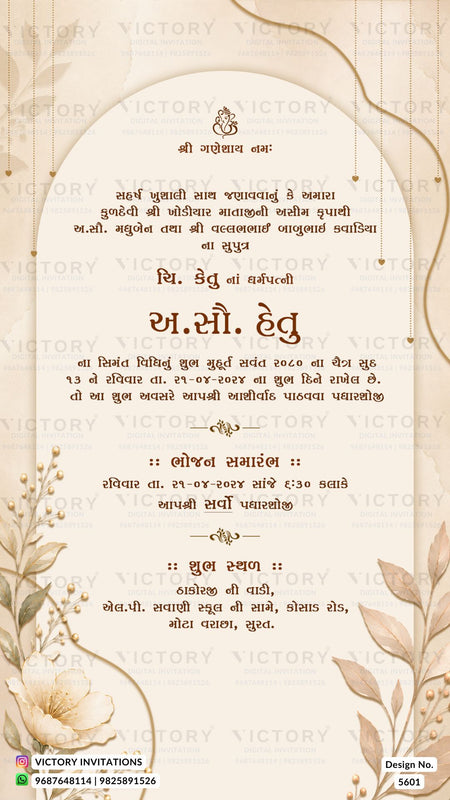 શ્રી ગણેશાય નમઃ
સહર્ષ ખુશાલી સાથ જણાવવાનું કે અમારા
કુળદેવી શ્રી ખોડીયાર માતાજીની અસીમ કૃપાથી
અ.સૌ. મધુબેન તથા શ્રી વલ્લભભાઈ બાબુભાઇ કવાડિયા
ના સુપુત્ર
ચિ. કેતુ નાં ધર્મપત્ની
અ.સૌ. હેતુ
ના સિમંત વિધિનું શુભ મુહૂર્ત સવંત ૨૦૮૦ ના ચૈત્ર સુદ
૧૩ ને રવિવાર તા. ૨૧-૦૪-૨૦૨૪ ના શુભ દિને રાખેલ છે.
તો આ શુભ અવસરે આપશ્રી આશીર્વાદ પાઠવવા પધારશોજી
:: ભોજન સમારંભ ::
રવિવાર તા. ૨૧-૦૪-૨૦૨૪ સાંજે ૬:૩૦ કલાકે
આપશ્રી સર્વો પધારશોજી
:: શુભ સ્થળ ::
ઠાકોરજી ની વાડી,
એલ.પી. સવાણી સ્કૂલ ની સામે, કોસાડ રોડ,
મોટા વરાછા, સુરત.
VICTORY INVITATIONS
9687648114 | 9825891526
Design No.
5601
VICTORY
DIGITAL INVITATION
9687648114 | 9825891526